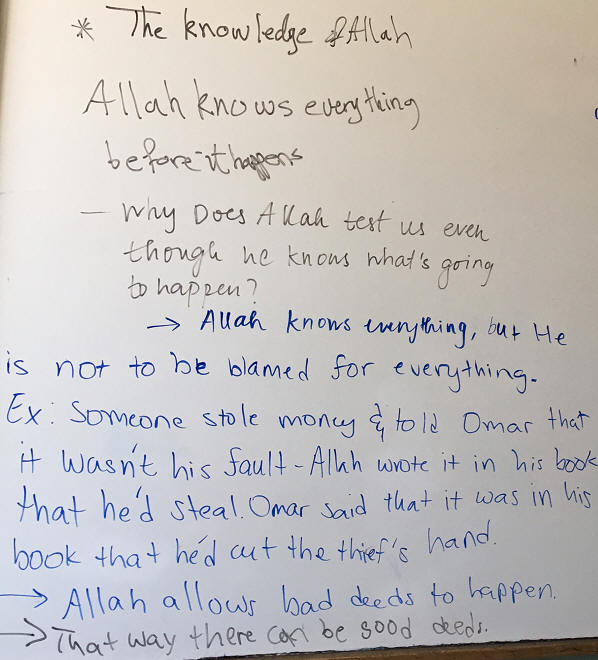 * The knowledge of Allah
Allah knows everything
before it happens
– Why Does Allah test us even
though he knows what's going
to happen?
→ Allah knows everything, but He
is not to be blamed for everything.
Ex: Someone stole money & told Omar that
it wasn't his fault - Allah wrote it in his book
that he'd steal. Omar said that it was in his
book that he'd cut the thief's hand.
→ Allah allows bad deeds to happen.
→ That way there can be good deeds.